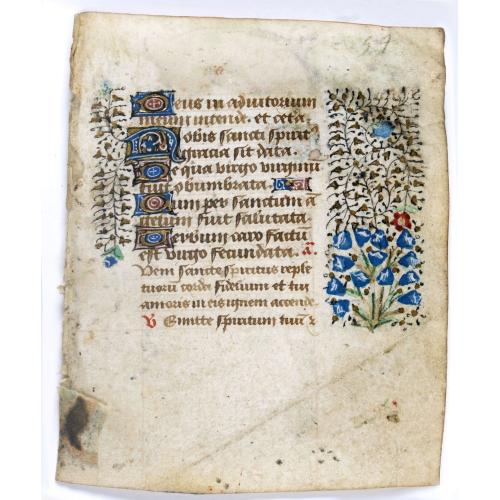 Deus in adiutorium
meum intende. et ceta
Nobis sancti spirit⁹
gracia sit data.
De qua virgo virginū
fuit obumbrata.
Cum per sanctum a
gelum fuit salutata
Verbum caro factū
est virgo fecundata. a.
Veni sancte spiritus reple
tuorū corda fidelium et tui
amoris in eis ignem accende.
V Emitte spiritum tuū z